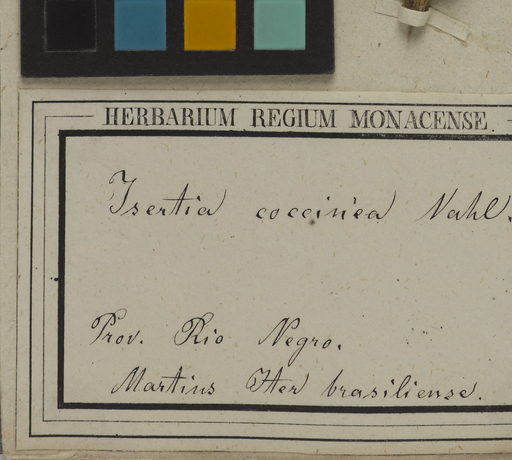 HERBARIUM REGIUM MONACENSE.
Isertia coccinea Vahl.
Prov. Rio Negro.
Martius Iter brasiliense.